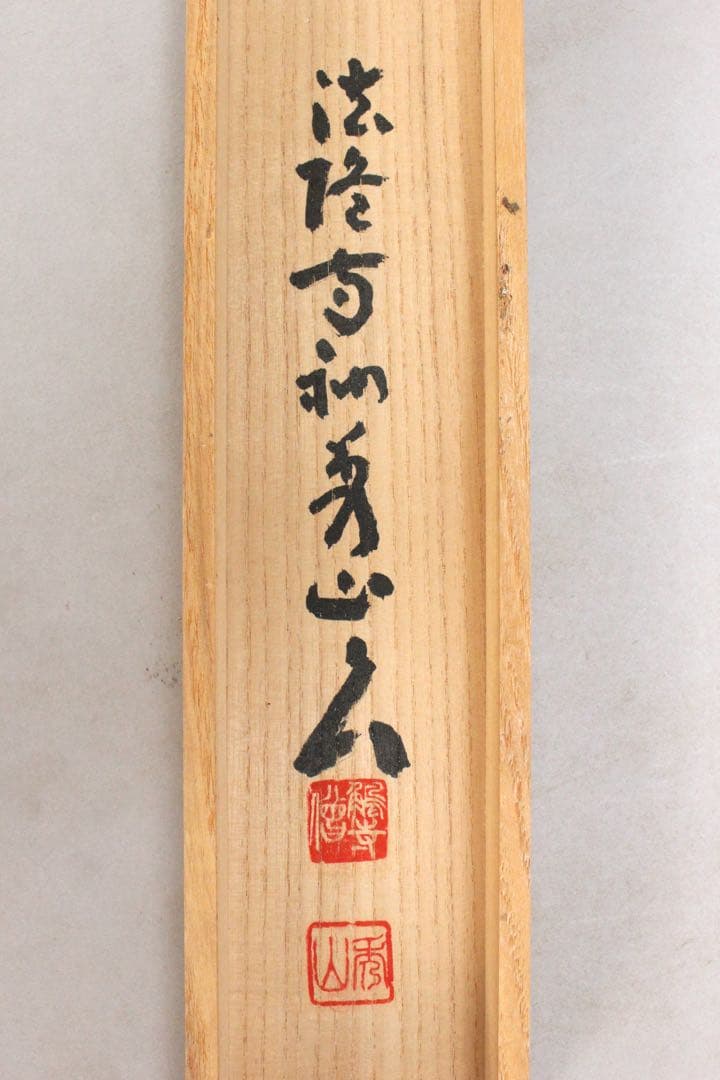 法隆寺衲秀山人
秀山